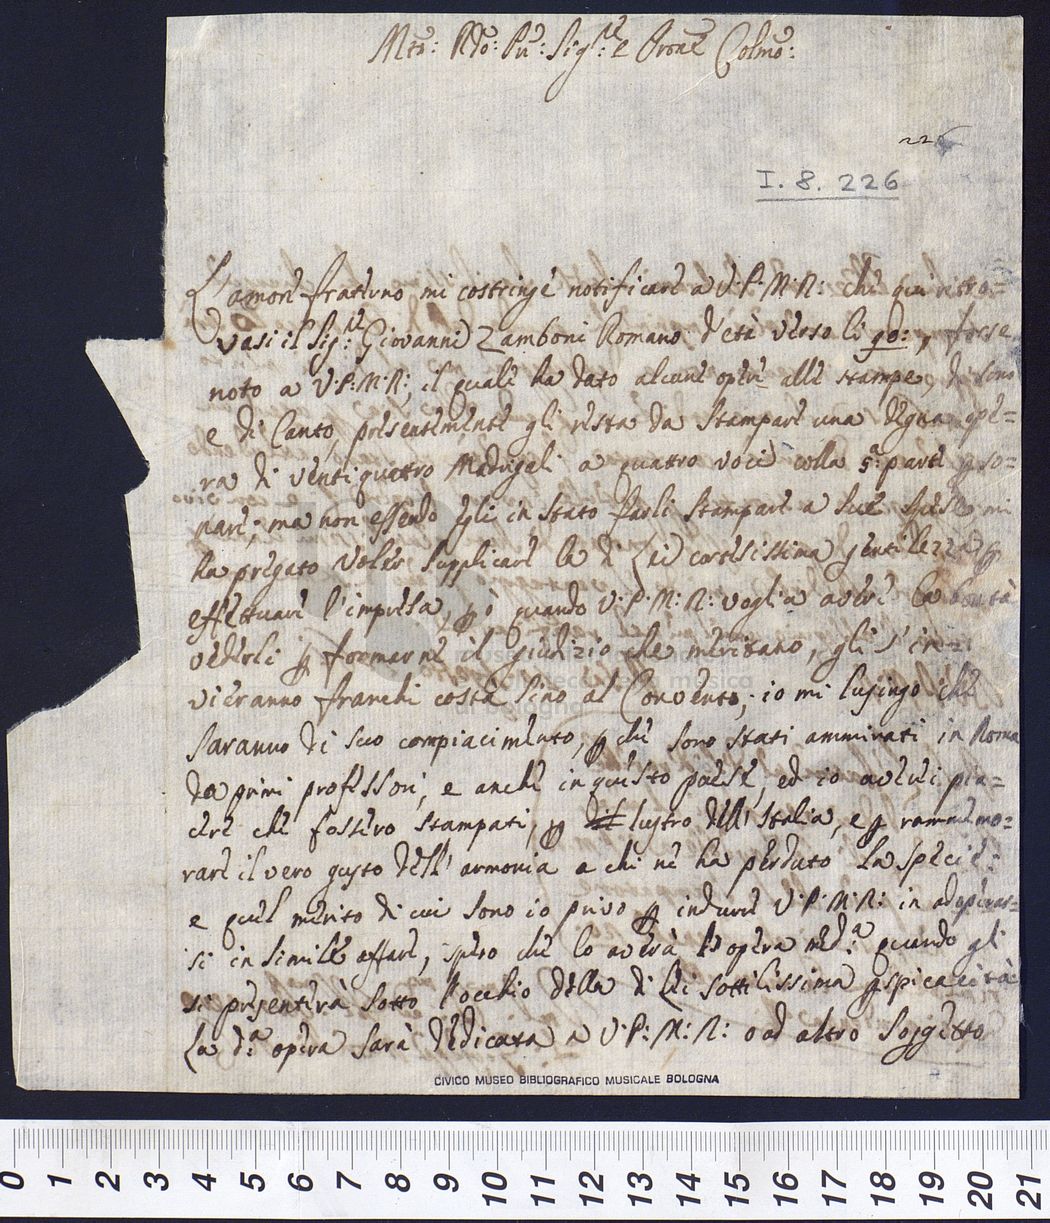 Mto: Rdo: Pn: Sigre: e Prone Colmo:
226
I. 8. 226
L'amore fraterno mi costringe notificare a V: P: M: R: che quì ritro=
vasi il Sigre: Giovanni Zamboni Romano d'età verso li 90:, forse
noto a V: P: M: R:, il quale ha dato alcune opere alle stampe, di sono
e di Canto, presentemente gli resta da stampare una degna ope=
ra di ventiquattro Madrigali a quattro voci colla 5a: parte p so=
nare; ma non essendo Egli in stato farli stampare a sue spese mi
ha pregato voler supplicare la di Lei cortesissima gentilezza p
effettuare l'impresa, p ò quando V: P: M: R: voglia avere la bontà
vederli p formarne il giudizio che meritano, gli s'in=
vieranno franchi costà sino al Convento; io mi lusingo che
saranno di suo compiacimento, p che sono stati ammirati in Roma
da primi professori, e anche in questo paese, ed io averei pia=
cere che fossero stampati, p lustro dell'Italia, e p rammemo=
rare il vero gusto dell'armonia a chi ne ha perduto la specie:
e quel merito di cui sono io privo p indurre V: P: M: R: in adoperar=
si in simile affare, spero che lo averà l'opera meda: quando gli
si presenterà sotto l'occhio della di Lei sottilissima pspicacità
La da: opera sarà dedicata a V: P: M: R: o ad altro soggetto
CIVICO MUSEO BIBLIOGRAFICO MUSICALE BOLOGNA
0 1 2 3 4 5 6 7 8 9 10 11 12 13 14 15 16 17 18 19 20 21